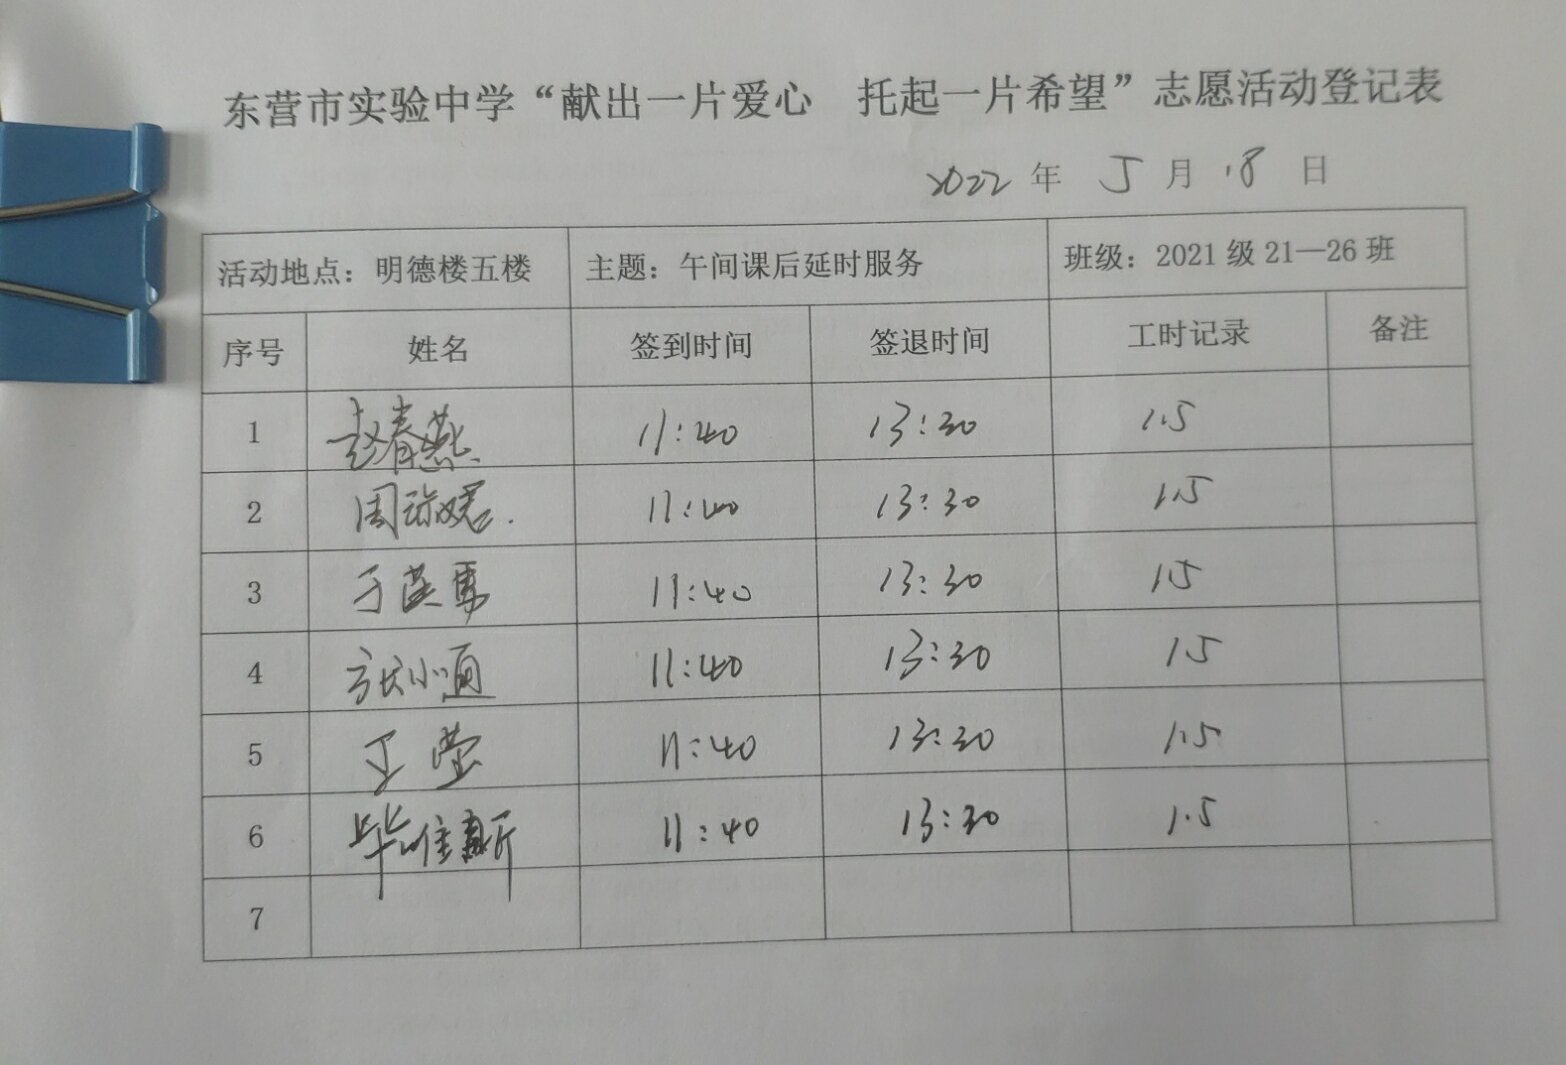 东营市实验中学“献出一片爱心 托起一片希望”志愿活动登记表
2022 年 5 月 18 日
活动地点：明德楼五楼 主题：午间课后延时服务 班级：2021 级 21—26 班
序号 姓名 签到时间 签退时间 工时记录 备注
1 赵春燕 11:40 13:30 1.5
2 周 11:40 13:30 1.5
3 于 11:40 13:30 1.5
4 张小 11:40 13:30 1.5
5 王莹 11:40 13:30 1.5
6 毕 11:40 13:30 1.5
7